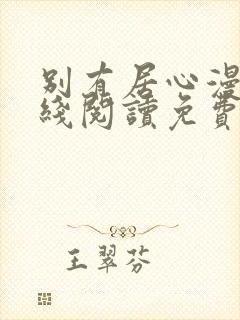 别有居心漫
綫閱讀免費
王翠芬